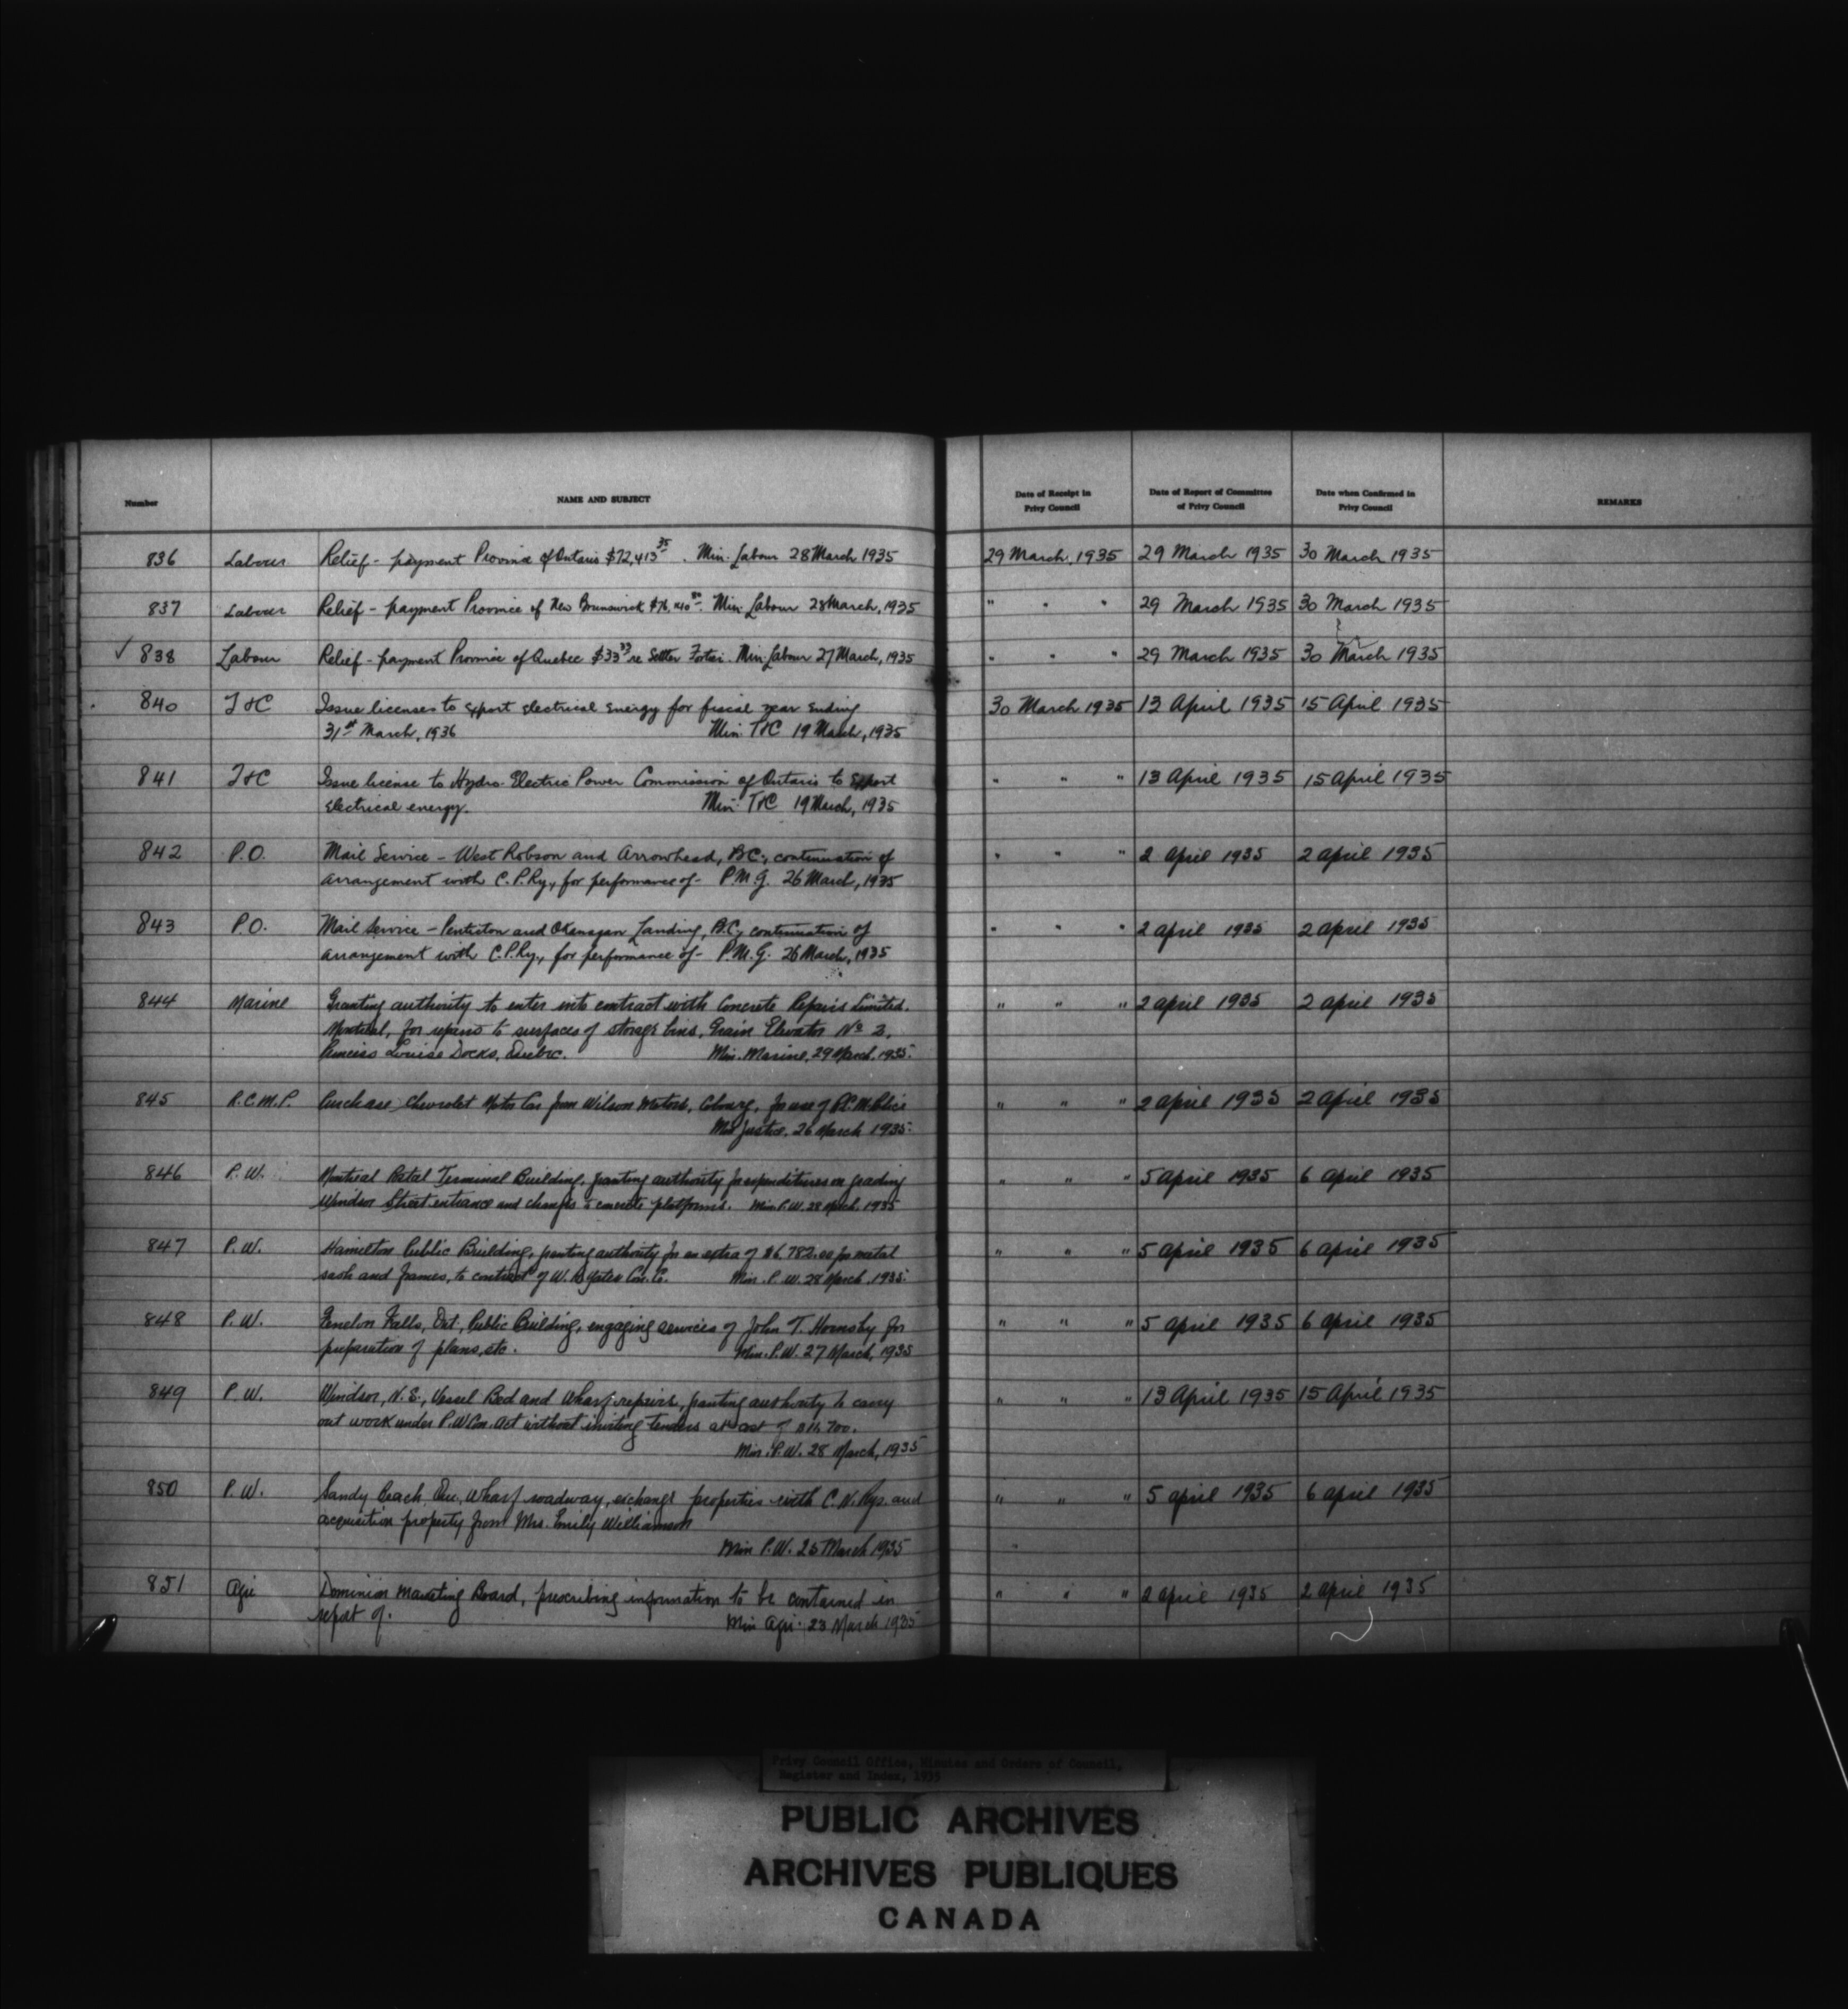 Number NAME AND SUBJECT Date of Receipt in Privy Council Date of Report of Committee of Privy Council Date when Confirmed in Privy Council REMARKS
836 Labour Relief - payment Province of Ontario $72,413 35. Min. Labour 28 March 1935 29 March, 1935 29 March 1935 30 March 1935
837 Labour Relief - payment Province of New Brunswick Min. Labour 28 March, 1935 " " " 29 March 1935 30 March 1935
✓ 838 Labour Relief - payment Province of Quebec $33 33 re Settler Fortier. Min. Labour 27 March, 1935 " " " 29 March 1935 30 March 1935
840 T&C Issue licenses to export electrical energy for fiscal year ending 30 March 1935 13 April 1935 15 April 1935
31st March, 1936 Min. T&C 19 March, 1935
841 T&C Issue license to Hydro Electric Power Commission of Ontario to export " " " 13 April 1935 15 April 1935
electrical energy. Min. T&C 19 March, 1935
842 P.O. Mail Service - West Robson and Arrowhead, B.C., continuation of " " " 2 April 1935 2 April 1935
arrangement with C.P.Ry., for performance of - P.M.G. 26 March, 1935
843 P.O. Mail Service - Penticton and Okanagan Landing, B.C., continuation of " " " 2 April 1935 2 April 1935
arrangement with C.P.Ry., for performance of - P.M.G. 26 March, 1935
844 Marine Granting authority to enter into contract with Concrete Repairs Limited. " " " 2 April 1935 2 April 1935
Montreal, for repairs to surfaces of storage bins, Grain Elevator No 2,
Princess Louise Docks, Quebec. Min. Marine, 29 March, 1935.
845 R.C.M.P. Purchase Chevrolet Motor Car from Wilson Motors, Cobourg, for use of R.C.M. Police " " " 2 April 1935 2 April 1935
Min. Justice, 26 March 1935.
846 P.W. Montreal Postal Terminal Building, granting authority for expenditures on grading " " " 5 April 1935 6 April 1935
Windsor Street entrance and changes to concrete platforms. Min. P.W. 28 March, 1935
847 P.W. Hamilton Public Building, granting authority for an extra of $6782.00 for metal " " " 5 April 1935 6 April 1935
sash and frames, to contract of W.H. Yates Con. Co. Min. P.W. 28 March, 1935.
848 P.W. Fenelon Falls, Ont., Public Building, engaging services of John T. Hornsby for " " " 5 April 1935 6 April 1935
preparation of plans, etc. Min. P.W. 27 March, 1935
849 P.W. Windsor, N.S., Vessel Bed and Wharf repairs, granting authority to carry " " " 13 April 1935 15 April 1935
out work under P.W. Con. Act without inviting tenders at cost of
Min. P.W. 28 March, 1935
850 P.W. Sandy Beach, Que., Wharf roadway, exchange properties with C.N. Rys. and " " " 5 April 1935 6 April 1935
acquisition property from Mrs. Emily Williamson
Min P.W. March 1935
851 Agri Dominion Marketing Board, prescribing information to be contained in " " " 2 April 1935 2 April 1935
report of. Min Agri. 23 March 1935
Privy Council Office, Minutes and Orders of Council,
Register and Index, 1935
PUBLIC ARCHIVES
ARCHIVES PUBLIQUES
CANADA